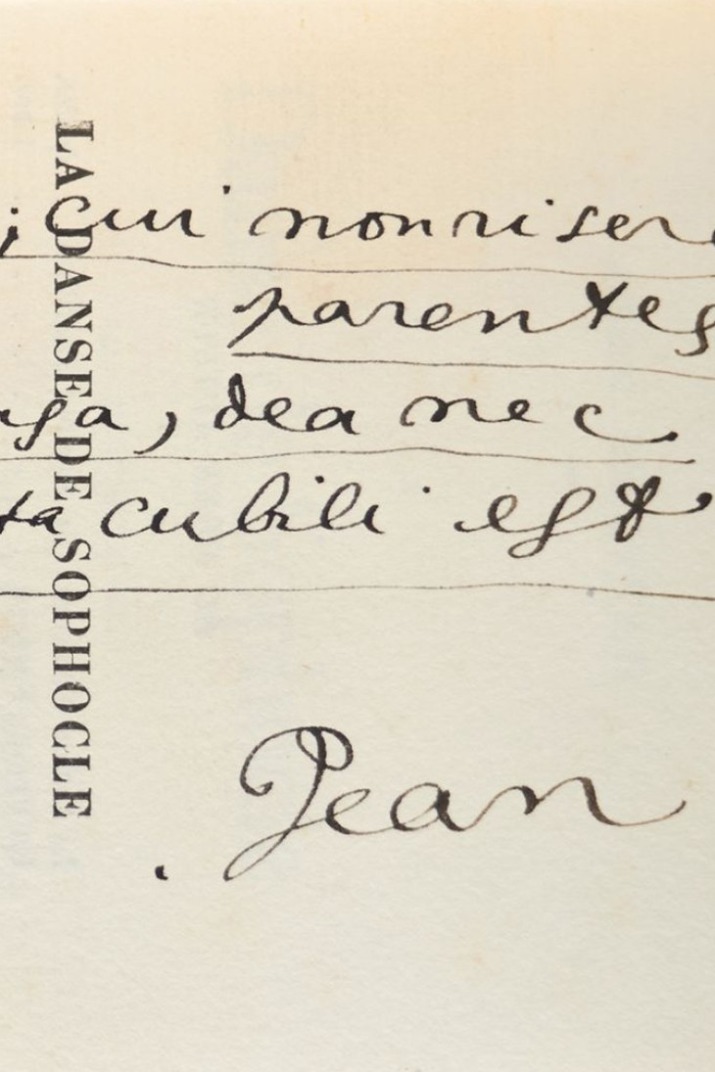 LA DANSE DE SOPHOCLE
; cui non riser
parentes
, dea nec
cubili est
Jean